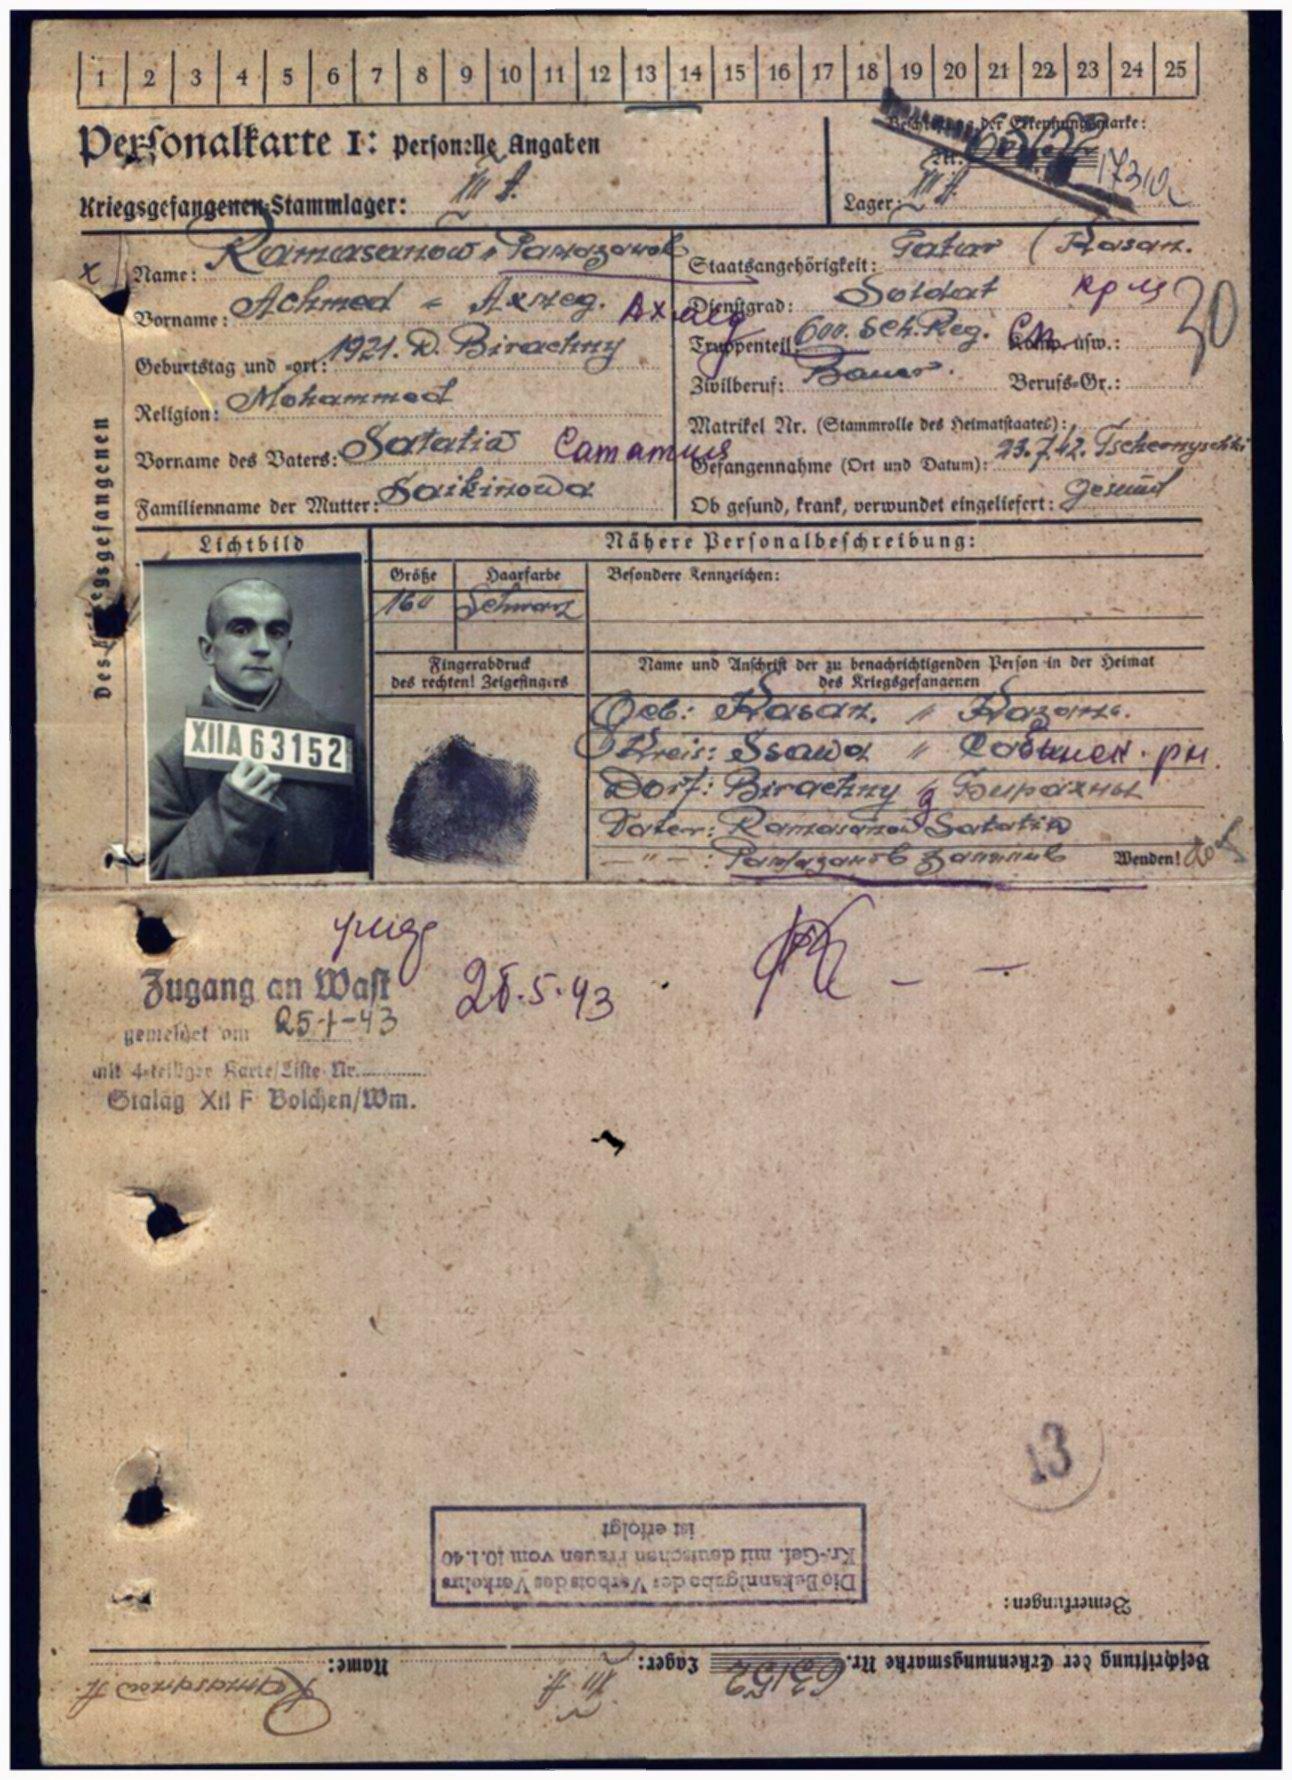 1 2 3 4 5 6 7 8 9 10 11 12 13 14 15 16 17 18 19 20 21 22 23 24 25
Personalkarte I: Personelle Angaben
Kriegsgefangenen-Stammlager: XII A.
Beschriftung der Erkennungsmarke:
Nr. 63152
17310
Lager: XII A.
Des Kriegsgefangenen
x
Name: Ramasanow " Рамазанов
Vorname: Achmed = Ахмед. Ахмед
Geburtstag und -ort: 1921. D. Birachny
Religion: Mohammed
Vorname des Vaters: Satatia
Familienname der Mutter: Saikinowa
Staatsangehörigkeit: Tatar (Kasan.
Dienstgrad: Soldat кр-ц
Truppenteil: 600. Sch. Reg. Komp. usw.:
30
Zivilberuf: Bauer. Berufs-Gr.:
Matrikel Nr. (Stammrolle des Heimatstaates):
Gefangennahme (Ort und Datum): 23.7.42. Tschernyschki
Ob gesund, krank, verwundet eingeliefert: gesund
Lichtbild
Nähere Personalbeschreibung:
Größe
160
Haarfarbe
Schwarz
Besondere Kennzeichen:
Fingerabdruck
des rechten! Zeigefingers
XIIA 63152
Name und Anschrift der zu benachrichtigenden Person in der Heimat
des Kriegsgefangenen
Geb: Kasan. " Казань.
Kreis: Ssawa " рн.
Dorf: Birachny д Бирахны
Vater: Ramasanow Satatia
— " — : Рамазанов
Wenden!
Zugang an Wast
gemeldet am 25-1-43
mit 4-teiliger Karte/Liste Nr.
Stalag XII F Bolchen/Wm.
25.5.43
13
Die Bekanntgabe des Verbots des Verkehrs
Kr.-Gef. mit deutschen Frauen vom 10.1.40
ist erfolgt
Bemerkungen:
Beschriftung der Erkennungsmarke Nr. 63152 Lager: XII A. Name: Ramasanow A.